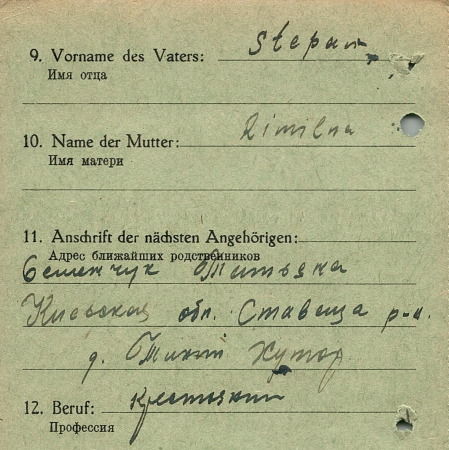 9. Vorname des Vaters: Stepan
Имя отца
10. Name der Mutter:
Имя матери
11. Anschrift der nächsten Angehörigen:
Адрес ближайших родственников
Семенчук Татьяна
Киевская обл. Ставища р-н.
д. Тихий Хутор
12. Beruf: крестьянин
Профессия